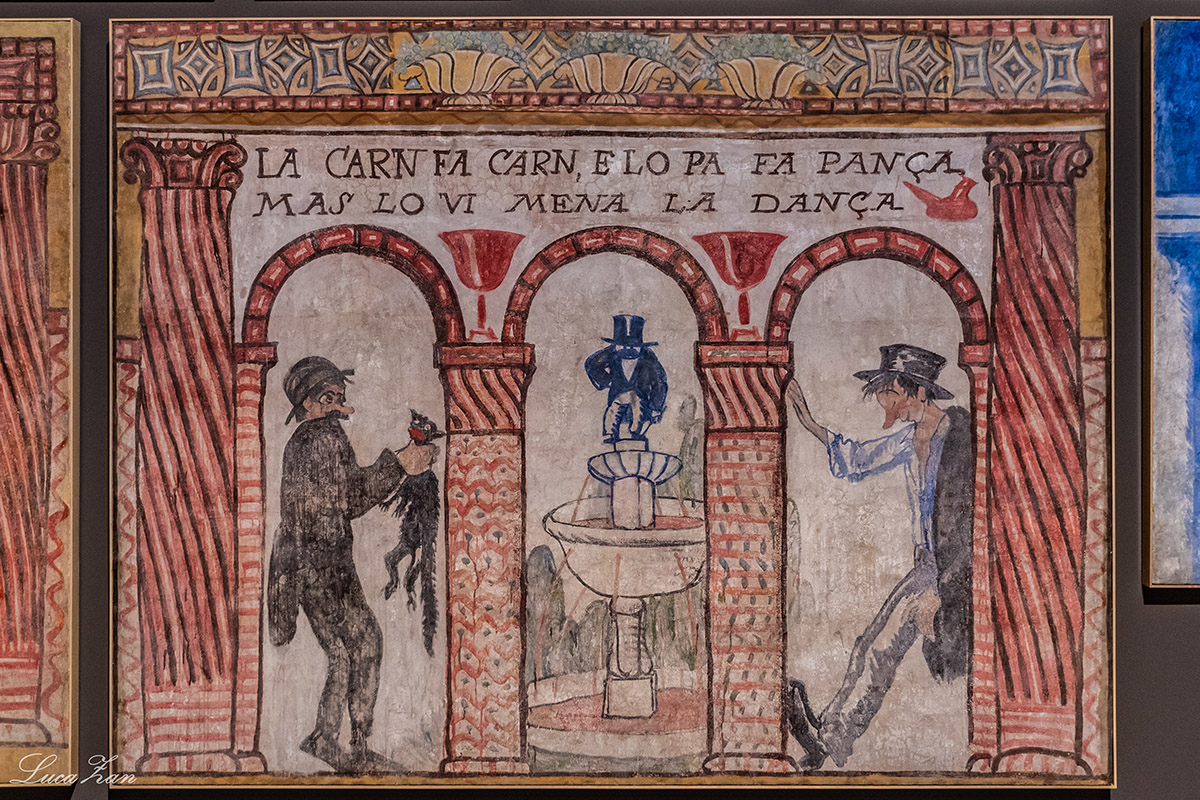 LA CARN FA CARN, E LO PA FA PANÇA,
MAS LO VI MENA LA DANÇA
Luca Zan